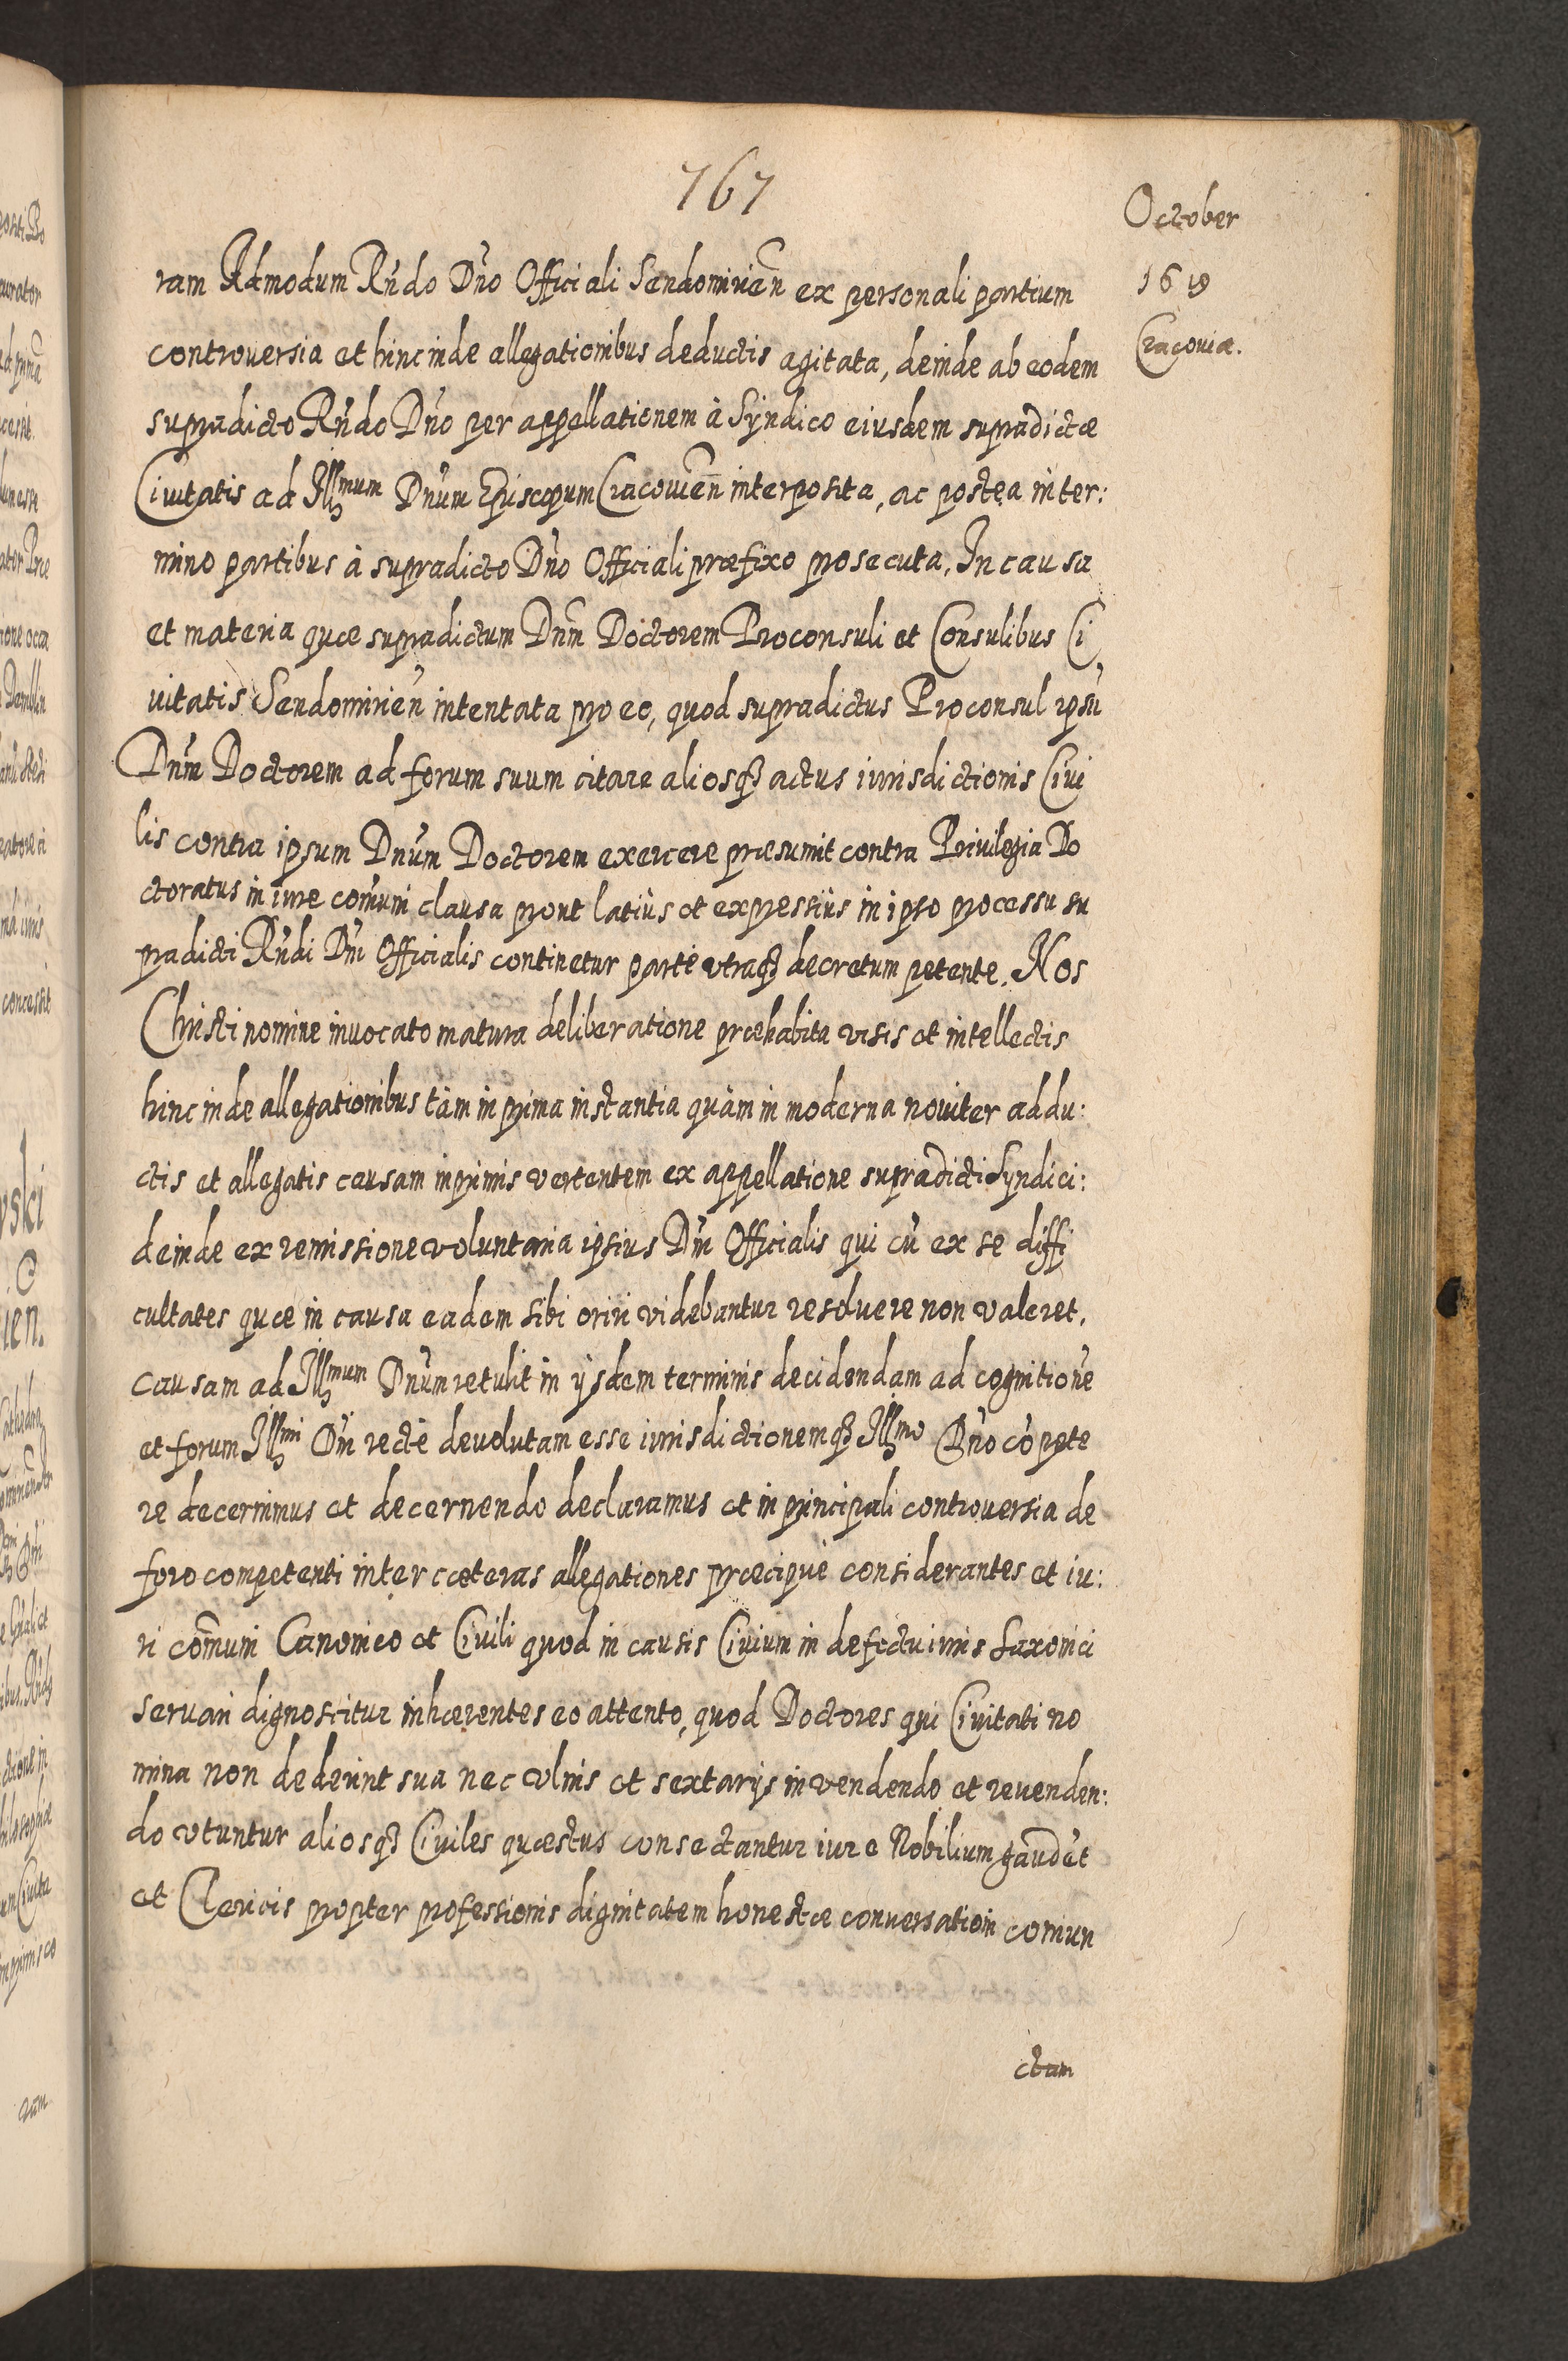 767
October
1619
Cracouiæ.
ram Admodum Rńdo Dńo Officiali Sendomirień ex personali partium
controuersia et hinc inde allegationibus deductis agitata, deinde ab eodem
supradicto Rńdo Dńo per appellationem à Syndico eiusdem supradictæ
Ciuitatis ad Illmum Dńum Episcopum Cracouień interposita, ac postea in ter:
mino partibus à supradicto Dńo Officiali præfixo prosecuta, In causa
et materia quæ supradictum Dńm Doctorem Proconsuli et Consulibus Ci
uitatis Sendomirień intentata pro eo, quod supradictus Proconsul ipsū
Dńm Doctorem ad forum suum citare aliosq3 actus iurisdictionis Ciui
lis contra ipsum Dńum Doctorem exercere præsumit contra Priuilegia Do
ctoratus in iure com̃uni clausa prout latiùs et expressiùs in ipso processu su
pradicti Rńdi Dńi Officialis continetur parte vtraq3 decretum petente. Nos
Christi nomine inuocato matura deliberatione præhabita visis et intellectis
hinc inde allegationibus tàm in prima instantia quàm in moderna nouiter addu:
ctis et allegatis causam inprimis vertentem ex appellatione supradicti Syndici:
deinde ex remissione voluntaria ipsius Dńi Officialis qui cū ex se diffi
cultates quæ in causa eadem sibi oriri videbantur resoluere non valeret,
causam ad Illmum Dńum retulit in ijsdem terminis decidendam ad cognitionē
et forum Illmi Dńi rectè deuolutam esse iurisdictionemq3 Illmo Dńo cōpete
re decernimus et decernendo declaramus et in principali controuersia de
foro competenti inter cæteras allegationes præcipuè considerantes et iu:
ri com̃uni Canonico et Ciuili quod in causis Ciuium in defectu iuris Saxonici
seruari dignoscitur inhærentes eo attento, quod Doctores qui Ciuitati no
mina non dederint sua nec vlnis et sextarijs in vendendo et reuenden:
do vtuntur aliosq3 Ciuiles quæstus consectantur iure Nobilium gaudēt
et Clericis propter professionis dignitatem honestæ conuersationi coniun
ctam